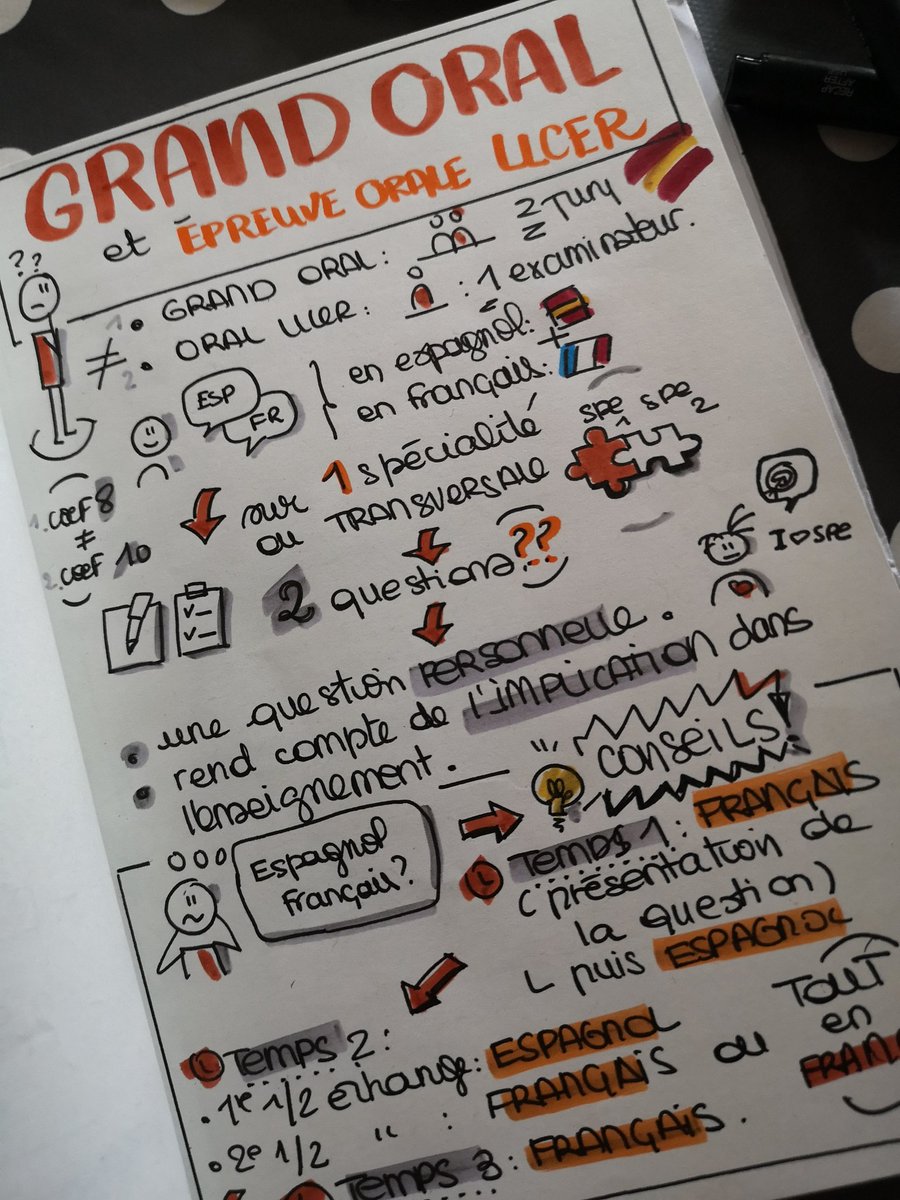 GRAND ORAL
et ÉPREUVE ORALE LLCER
??
1 • GRAND ORAL: 2 Jury
≠
2 • ORAL LLCER: : 1 examinateur.
ESP
FR
en espagnol:
+
en français:
1. coef 8
≠
2. coef 10
sur 1 spécialité
ou TRANSVERSALE
SPE 1 SPE 2
2 questions??
I ♡ SPE
• une question PERSONNELLE.
• rend compte de l'IMPLICATION dans
l'enseignement.
CONSEILS!
Espagnol
français?
Temps 1: FRANÇAIS
(présentation de
la question)
L puis ESPAGNOL
Temps 2:
• 1e 1/2 échange: ESPAGNOL
• 2e 1/2 " : FRANÇAIS ou TOUT
en
FRAN
Temps 3: FRANÇAIS.